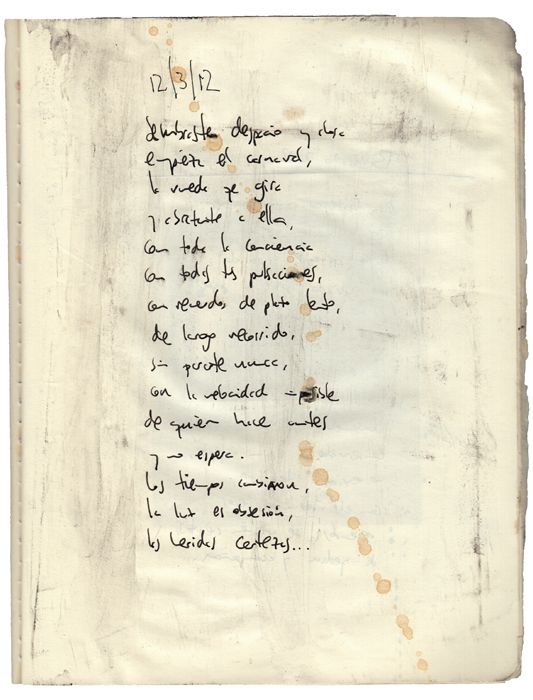 12/3/12
despacio y ahora
empieza el carnaval,
la rueda que gira
y abrázate a ella,
con toda la conciencia
con todas tus pulsaciones,
con recuerdos de plato lento,
de largo recorrido,
sin pararte nunca,
con la velocidad imposible
de quien hace antes
y no espera.
Los tiempos cambiaron,
la luz es obsesión,
las heridas certezas...